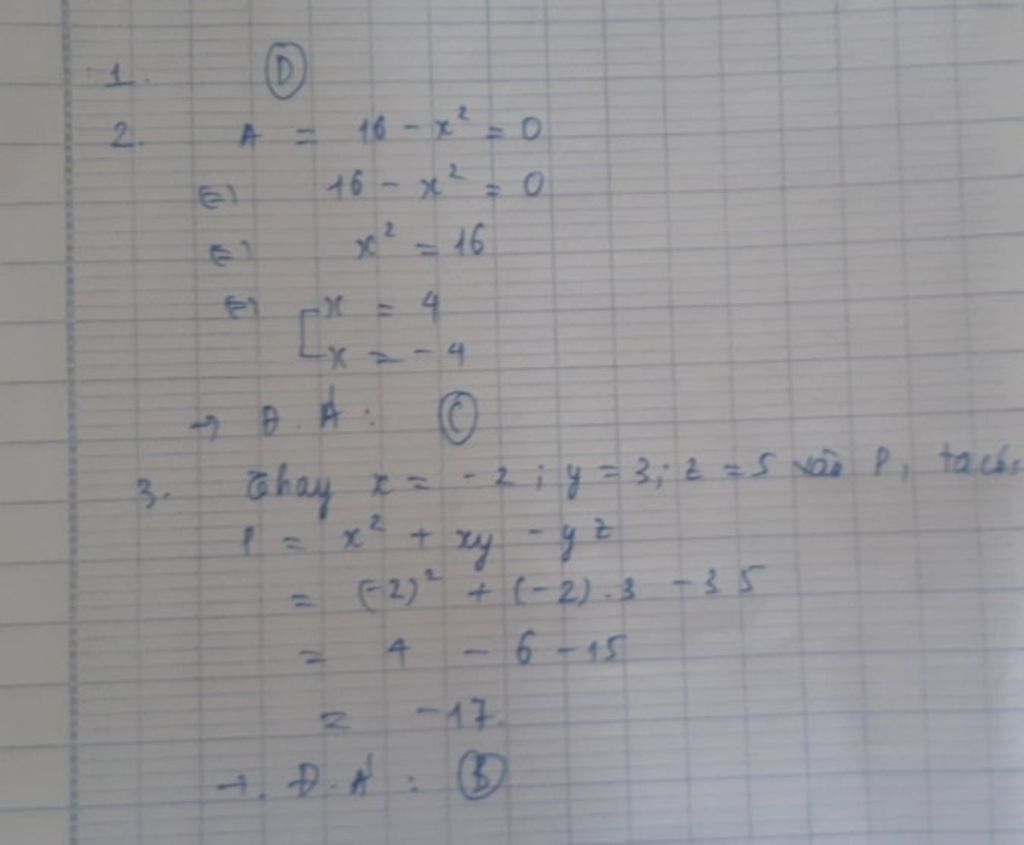 1. D
2. A = 16 - x² = 0
⇔ 16 - x² = 0
⇔ x² = 16
⇔ [x = 4
x = -4
→ Đ.Á: C
3. Thay x = -2; y = 3; z = 5 vào P, ta có:
P = x² + xy - yz
= (-2)² + (-2).3 - 3.5
= 4 - 6 - 15
= -17.
→. Đ.Á: B